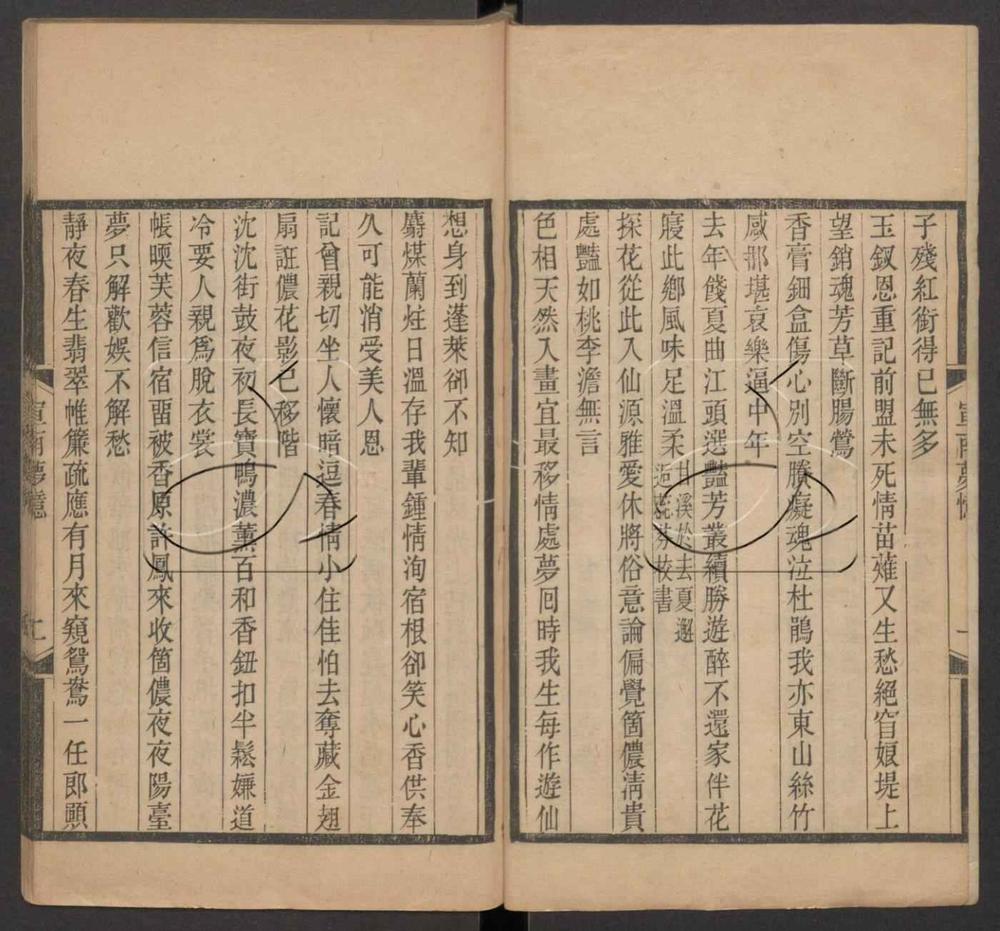 子殘紅銜得已無多
玉釵恩重記前盟未死情苗薙又生愁絕窅娘堤上
望銷魂芳草斷腸鶯
香膏鈿盒傷心別空賸癡魂泣杜鵑我亦東山絲竹
感那堪哀樂逼中年
去年餞夏曲江頭選豔芳叢續勝遊醉不還家伴花
寢此鄉風味足溫柔甘溪於去夏邂
逅花芬校書
探花從此入仙源雅愛休將俗意論偏覺箇儂淸貴
處豔如桃李澹無言
色相天然入畫宜最移情處夢回時我生每作遊仙
想身到蓬萊卻不知
麝煤蘭炷日溫存我輩鍾情洵宿根卻笑心香供奉
久可能消受美人恩
記曾親切坐人懷暗逗春情小住佳怕去奪藏金翅
扇誑儂花影已移階
沈沈街鼓夜初長寶鴨濃薰百和香鈕扣半鬆嫌道
冷要人親爲脫衣裳
帳暝芙蓉信宿畱被香原許鳳來收箇儂夜夜陽臺
夢只解歡娛不解愁
宣南夢憶
靜夜春生翡翠帷簾疏應有月來窺鴛鴦一任郎顚